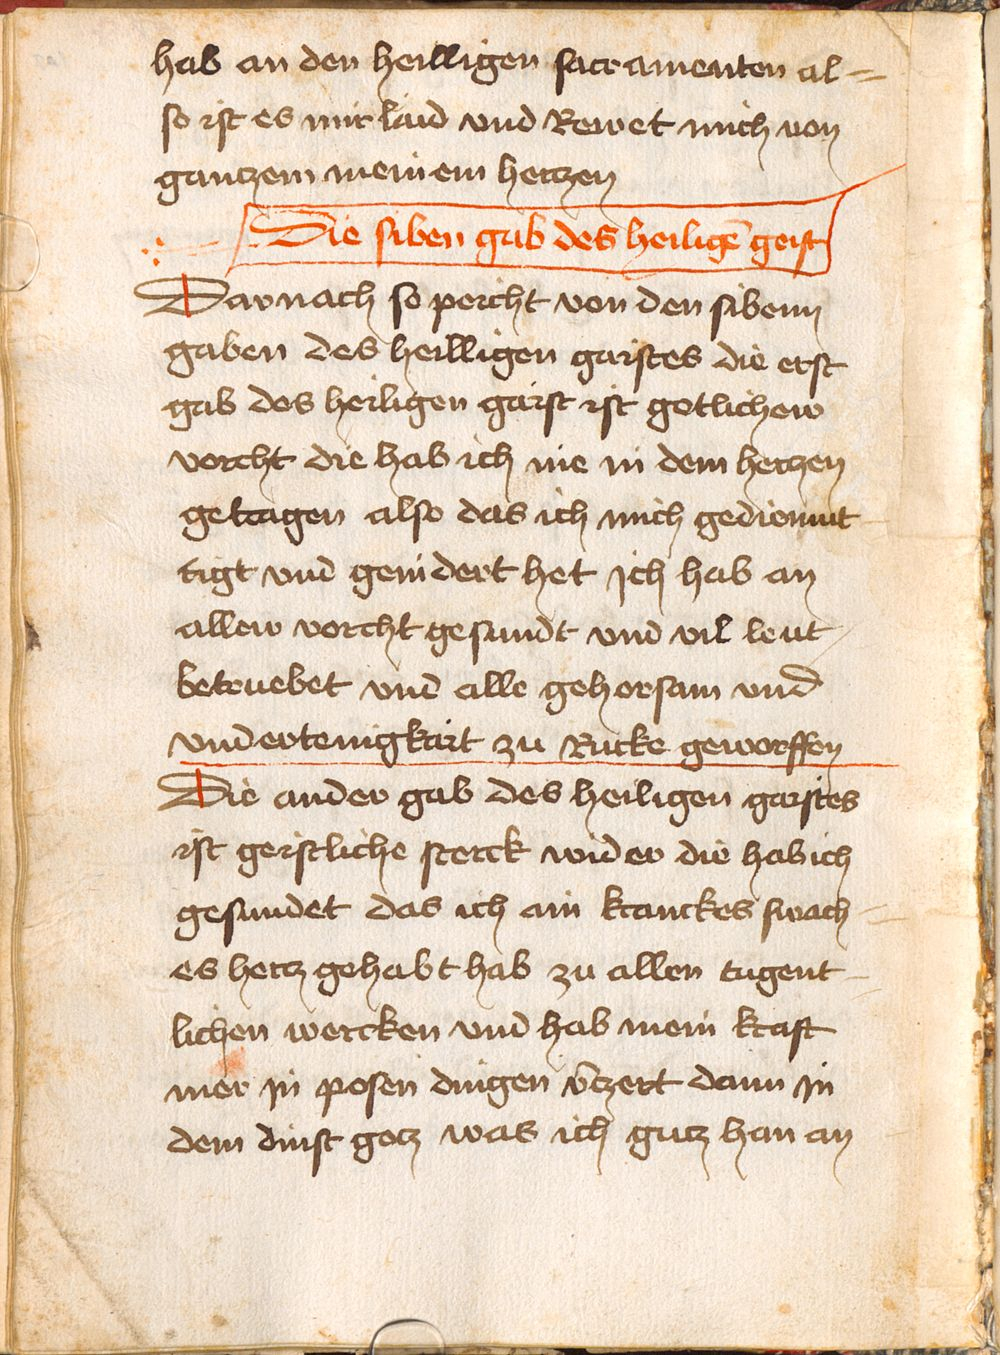 hab an den heilligen sacramenten al=
so ist es mir laid vnd Rewet mich von
gantzem meinem hertzen
Die siben gab des heiligē geist
Darnach so peicht von den sibenn
gaben des heilligen gaistes die erst
gab des heiligen gaist ist gotlichew
vorcht die hab ich nie in dem hertzen
getragen also das ich mich gediemut
tigt vnd gemdert het Ich hab an
allew vorcht gesundt vnd vil leut
betruebet vnd alle gehorsam vnd
vndertenigkait zu Rucke geworffen
Die ander gab des heiligen gaistes
ist geistliche sterck wider die hab ich
gesundet das ich ain kranckes swach=
es hertz gehabt hab zu allen tugent
lichen wercken vnd hab mein kraft
mer in posen dingen v̄tzert dann in
dem dinst gotz was ich gutz han an